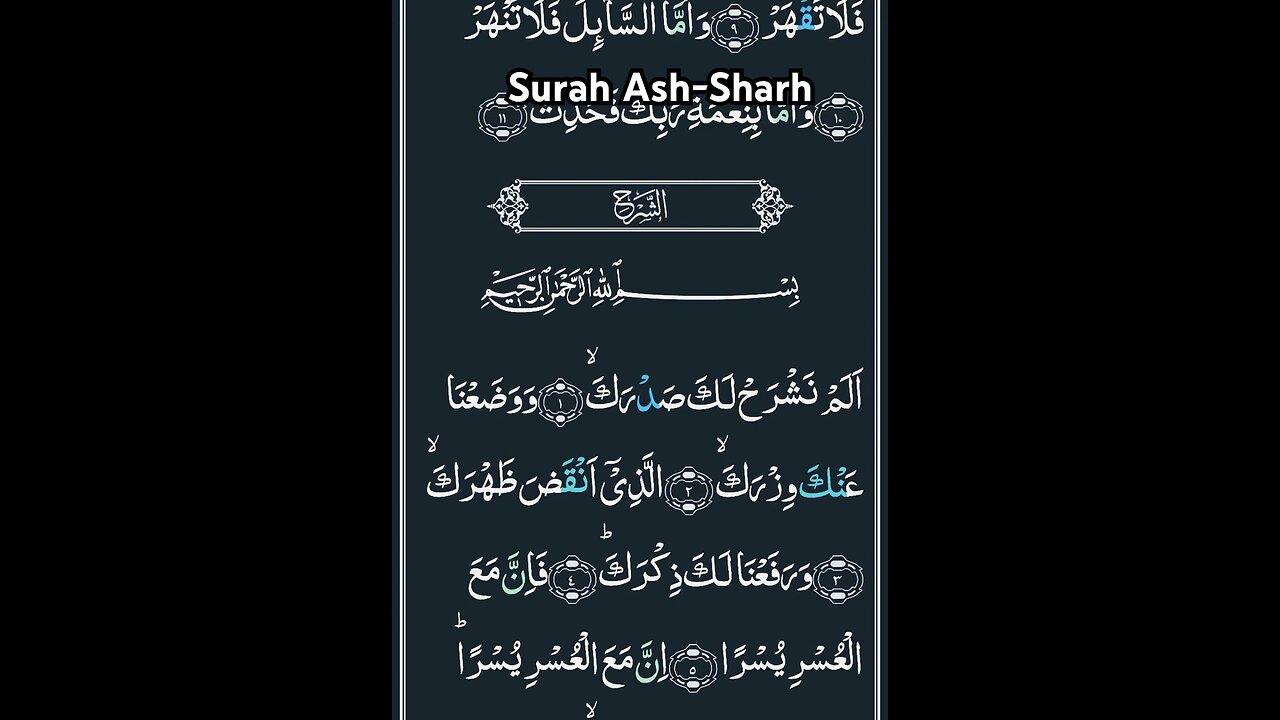 فَلَا تَقْهَرْ ۹ وَاَمَّا السَّآئِلَ فَلَا تَنْهَرْ
Surah Ash-Sharh
۱۰ وَاَمَّا بِنِعْمَةِ رَبِّكَ فَحَدِّثْ ۱۱
الشَّرْحِ
بِسْمِ ٱللَّهِ ٱلرَّحْمَٰنِ ٱلرَّحِيمِ
اَلَمْ نَشْرَحْ لَكَ صَدْرَكَ ۙ ۱ وَوَضَعْنَا
عَنْكَ وِزْرَكَ ۙ ۲ الَّذِیْٓ اَنْقَضَ ظَهْرَكَ ۙ
۳ وَرَفَعْنَا لَكَ ذِكْرَكَ ؕ ٤ فَاِنَّ مَعَ
الْعُسْرِ يُسْرًا ۵ اِنَّ مَعَ الْعُسْرِ يُسْرًا ؕ